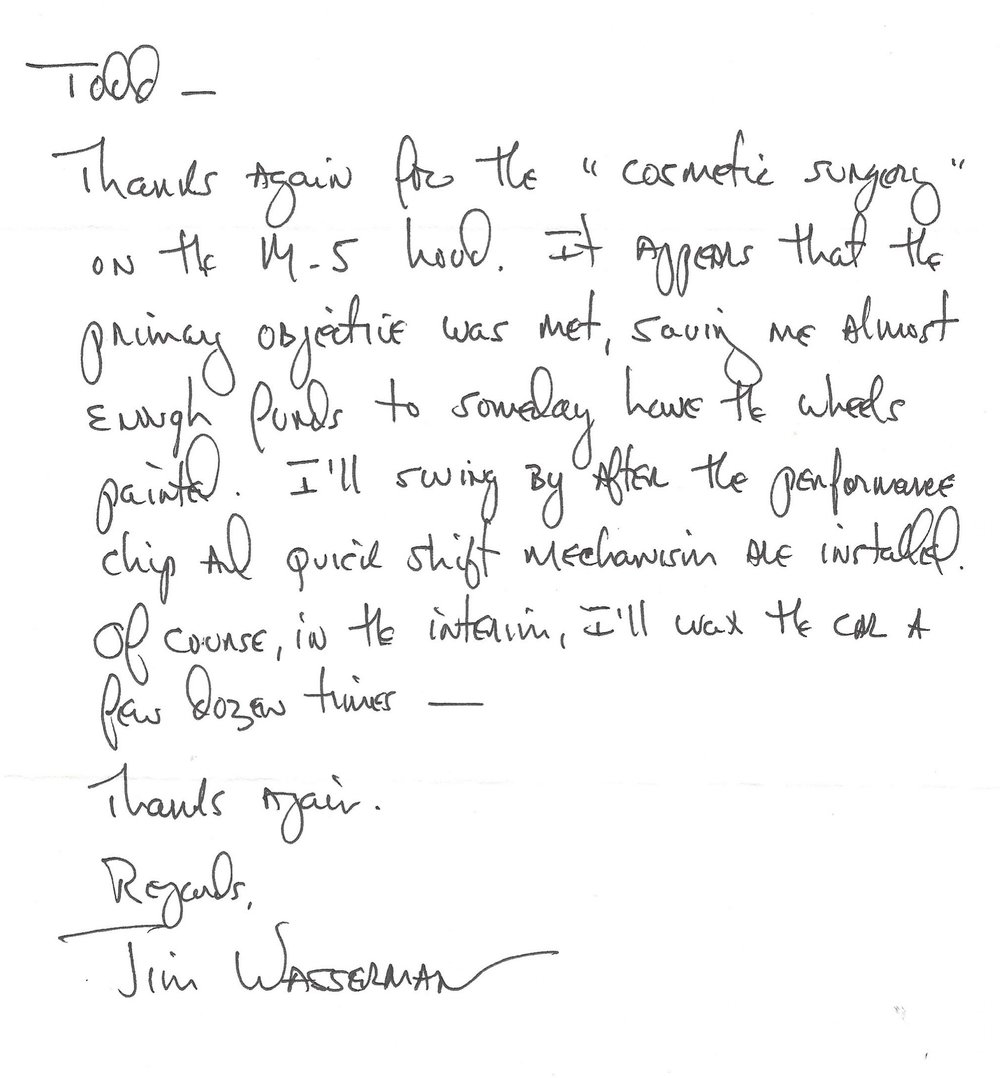 Todd —
Thanks again for the "cosmetic surgery"
on the M-5 hood. It appears that the
primary objective was met, saving me almost
enough funds to someday have the wheels
painted. I'll swing by after the performance
chip and quick shift mechanism are installed.
Of course, in the interim, I'll wax the car a
few dozen times —
Thanks again.
Regards,
Jim Wasserman